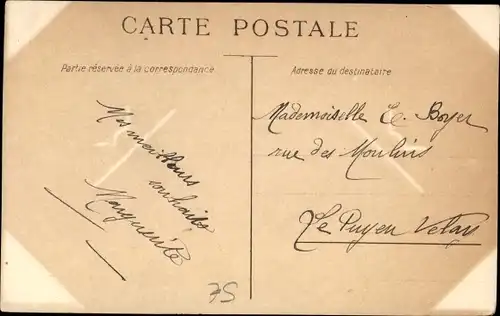 CARTE POSTALE
Partie réservée à la correspondance
Adresse du destinataire
Mes meilleurs
souhaits
Marguerite
Mademoiselle E. Boyer
rue des Moulins
Le Puy en Velay
75